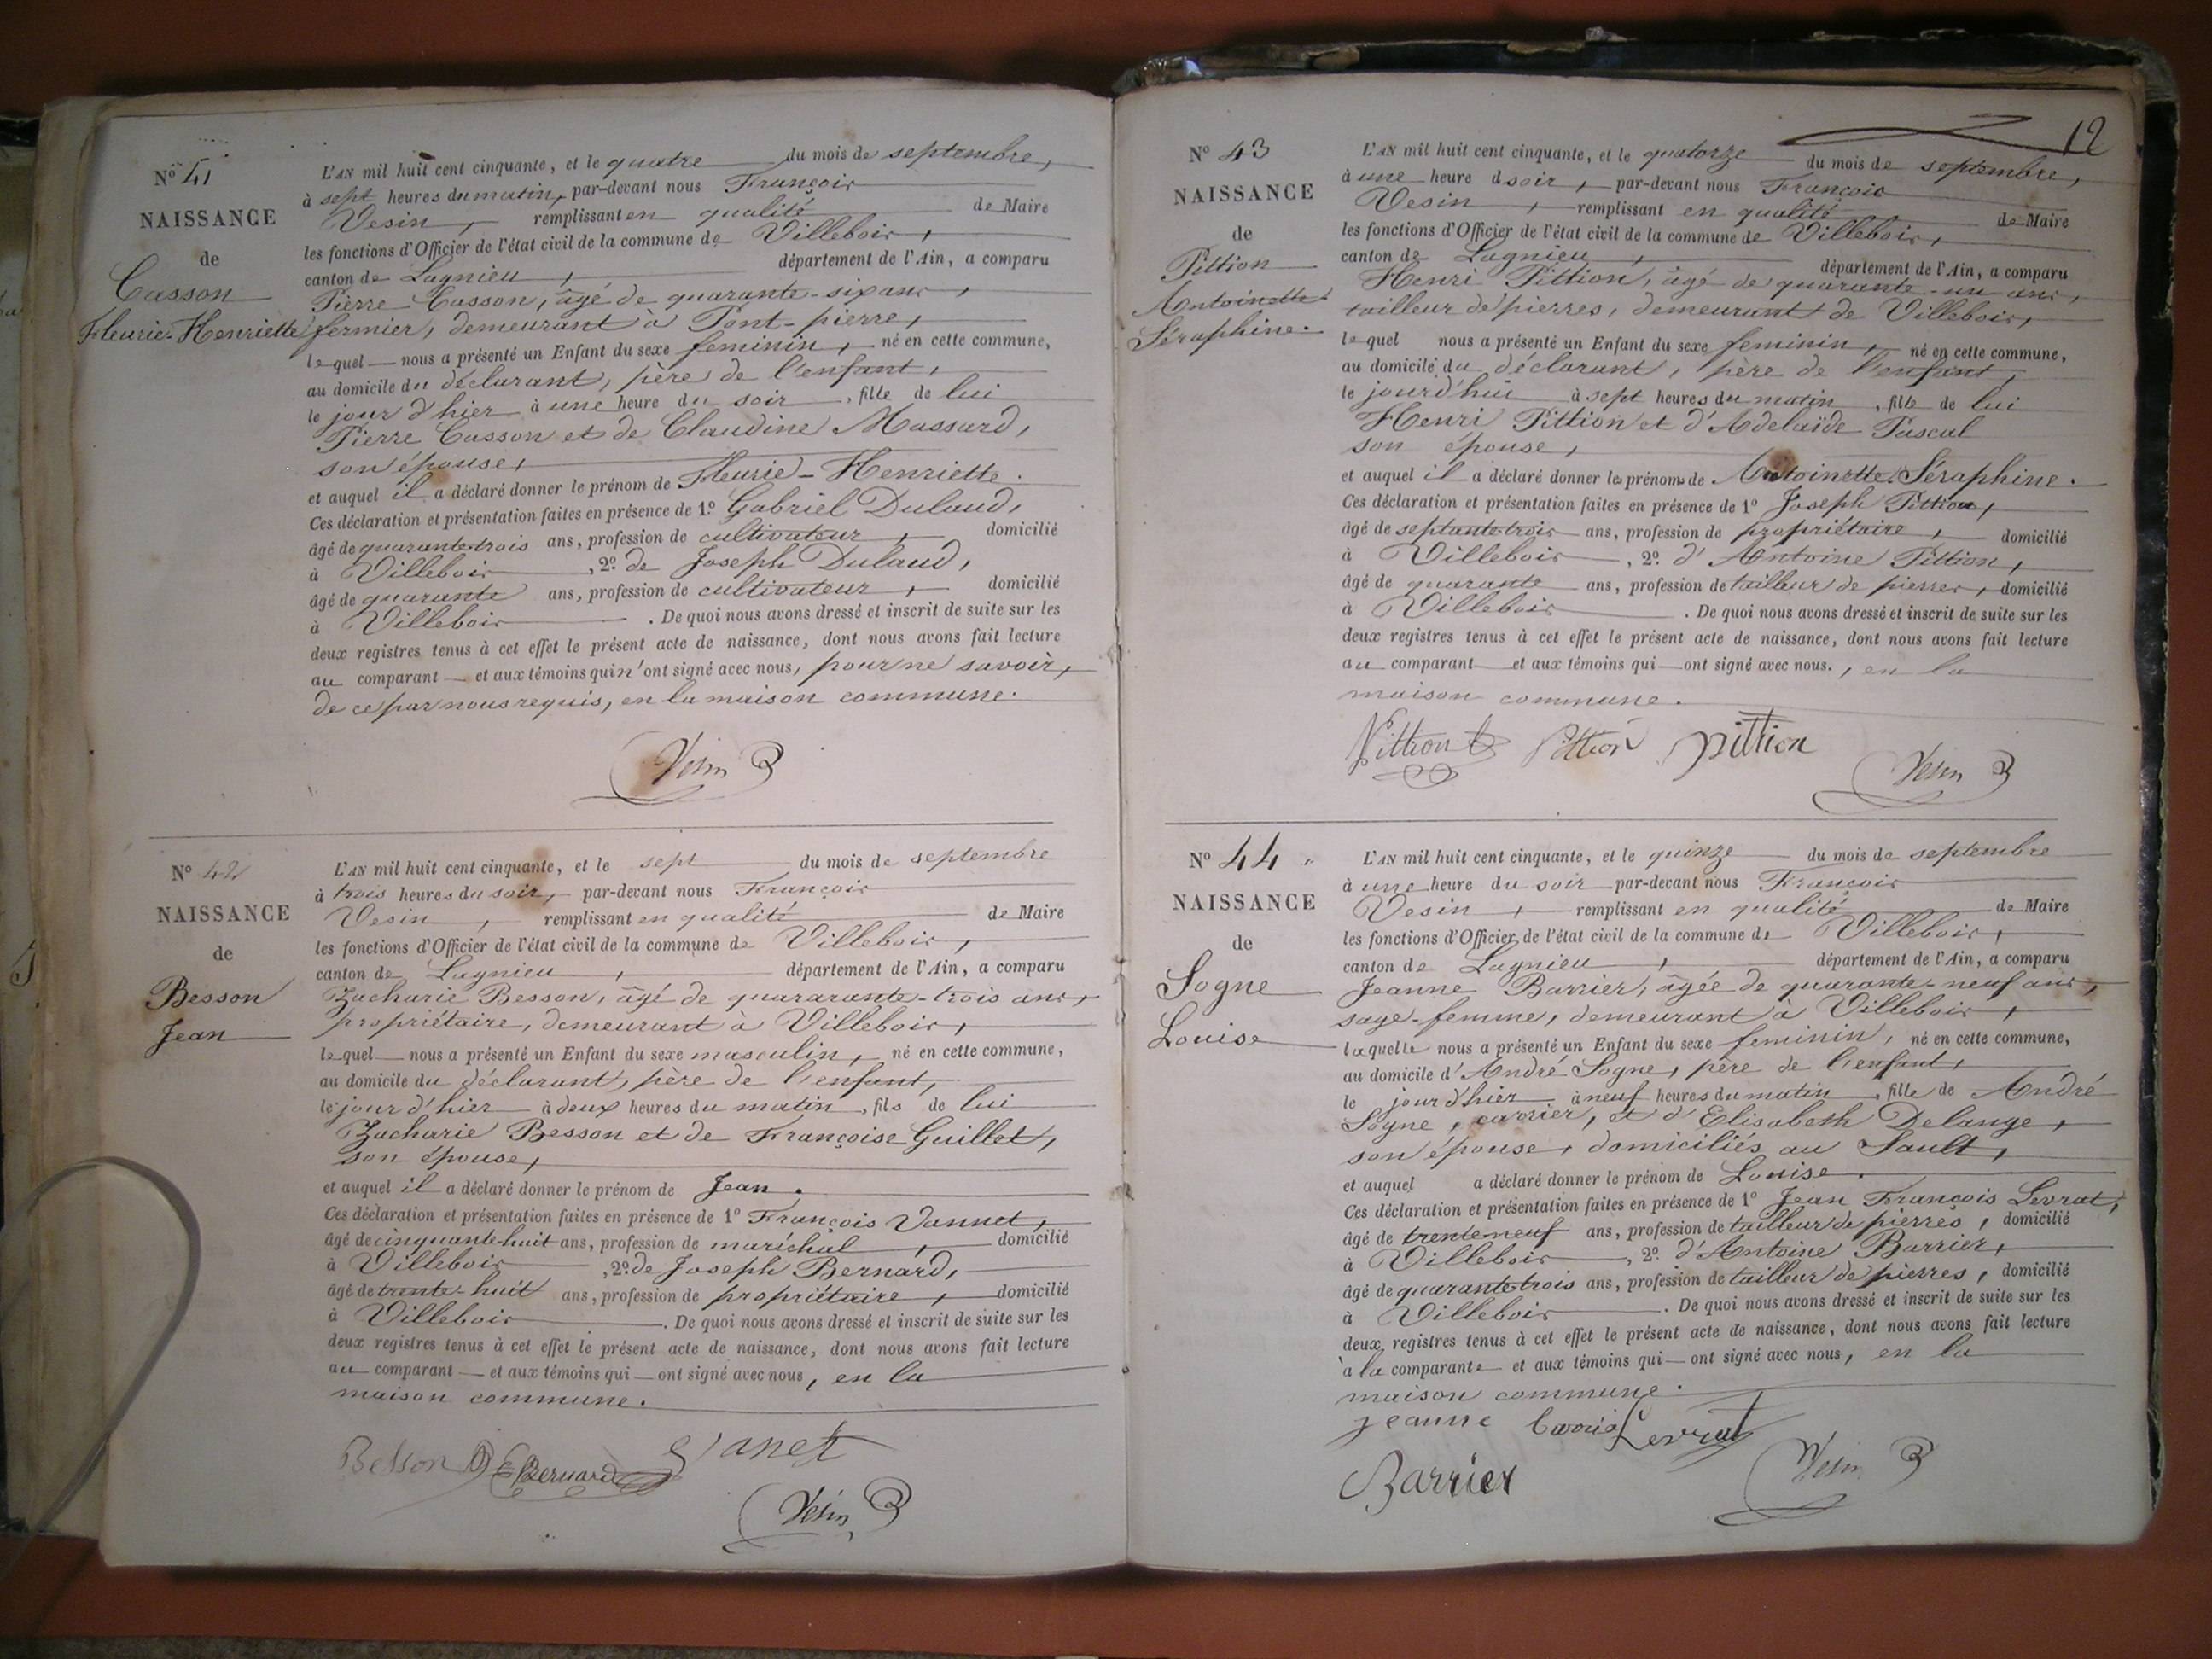 No 41
NAISSANCE
de
Casson
Fleurie-Henriette
L'AN mil huit cent cinquante, et le quatre du mois de septembre,
à sept heures du matin, par-devant nous François
Vesin, remplissant en qualité de Maire
les fonctions d'Officier de l'état civil de la commune de Villebois,
canton de Lagnieu, département de l'Ain, a comparu
Pierre Casson, âgé de quarante-six ans,
fermier, demeurant à Pont-pierre,
lequel nous a présenté un Enfant du sexe feminin, né en cette commune,
au domicile du déclarant, père de l'enfant,
le jour d'hier à une heure du soir, fille de lui
Pierre Casson et de Claudine Massard,
son épouse,
et auquel il a déclaré donner le prénom de Fleurie-Henriette.
Ces déclaration et présentation faites en présence de 1º Gabriel Dulaud,
âgé de quarante-trois ans, profession de cultivateur, domicilié
à Villebois, 2º de Joseph Dulaud,
âgé de quarante ans, profession de cultivateur, domicilié
à Villebois. De quoi nous avons dressé et inscrit de suite sur les
deux registres tenus à cet effet le présent acte de naissance, dont nous avons fait lecture
au comparant et aux témoins qui n'ont signé avec nous, pour ne savoir,
de ce par nous requis, en la maison commune.
Vesin
No 42
NAISSANCE
de
Besson
Jean
L'AN mil huit cent cinquante, et le sept du mois de septembre
à trois heures du soir, par-devant nous François
Vesin, remplissant en qualité de Maire
les fonctions d'Officier de l'état civil de la commune de Villebois,
canton de Lagnieu, département de l'Ain, a comparu
Zacharie Besson, âgé de quararante-trois ans,
propriétaire, demeurant à Villebois,
lequel nous a présenté un Enfant du sexe masculin, né en cette commune,
au domicile du déclarant, père de l'enfant,
le jour d'hier à deux heures du matin, fils de lui
Zacharie Besson et de Françoise Guillet,
son épouse,
et auquel il a déclaré donner le prénom de Jean.
Ces déclaration et présentation faites en présence de 1º François Vannet,
âgé de cinquante-huit ans, profession de maréchal, domicilié
à Villebois, 2º de Joseph Bernard,
âgé de trente-huit ans, profession de propriétaire, domicilié
à Villebois. De quoi nous avons dressé et inscrit de suite sur les
deux registres tenus à cet effet le présent acte de naissance, dont nous avons fait lecture
au comparant et aux témoins qui ont signé avec nous, en la
maison commune.
Besson Bernard Vanet
Vesin
12
No 43
NAISSANCE
de
Pittion
Antoinette
Séraphine.
L'AN mil huit cent cinquante, et le quatorze du mois de septembre,
à une heure d soir, par-devant nous François
Vesin, remplissant en qualité de Maire
les fonctions d'Officier de l'état civil de la commune de Villebois,
canton de Lagnieu, département de l'Ain, a comparu
Henri Pittion, âgé de quarante-un ans,
tailleur de pierres, demeurant de Villebois,
lequel nous a présenté un Enfant du sexe feminin, né en cette commune,
au domicile du déclarant, père de l'enfant,
le jourd'hui à sept heures du matin, fille de lui
Henri Pittion et d'Adelaïde Pascal
son épouse,
et auquel il a déclaré donner les prénoms de Antoinette Séraphine.
Ces déclaration et présentation faites en présence de 1º Joseph Pittion,
âgé de septante-trois ans, profession de propriétaire, domicilié
à Villebois, 2º d'Antoine Pittion,
âgé de quarante ans, profession de tailleur de pierres, domicilié
à Villebois. De quoi nous avons dressé et inscrit de suite sur les
deux registres tenus à cet effet le présent acte de naissance, dont nous avons fait lecture
au comparant et aux témoins qui ont signé avec nous., en la
maison commune.
Pittion Pittion pittion
Vesin
No 44
NAISSANCE
de
Sogne
Louise
L'AN mil huit cent cinquante, et le quinze du mois de septembre
à une heure du soir par-devant nous François
Vesin, remplissant en qualité de Maire
les fonctions d'Officier de l'état civil de la commune de Villebois,
canton de Lagnieu, département de l'Ain, a comparu
Jeanne Barrier, âgée de quarante-neuf ans,
sage-femme, demeurant à Villebois,
laquelle nous a présenté un Enfant du sexe feminin, né en cette commune,
au domicile d'André Sogne, père de l'enfant,
le jour d'hier à neuf heures du matin, fille de André
Sogne, carrier, et d'Elisabeth Delange,
son épouse, domiciliés au Sault,
et auquel a déclaré donner le prénom de Louise.
Ces déclaration et présentation faites en présence de 1º Jean François Levrat,
âgé de trenteneuf ans, profession de tailleur de pierres, domicilié
à Villebois, 2º d'Antoine Barrier,
âgé de quarante-trois ans, profession de tailleur de pierres, domicilié
à Villebois. De quoi nous avons dressé et inscrit de suite sur les
deux registres tenus à cet effet le présent acte de naissance, dont nous avons fait lecture
à la comparante et aux témoins qui ont signé avec nous, en la
maison commune.
jeanne Levrat
Barrier Vesin